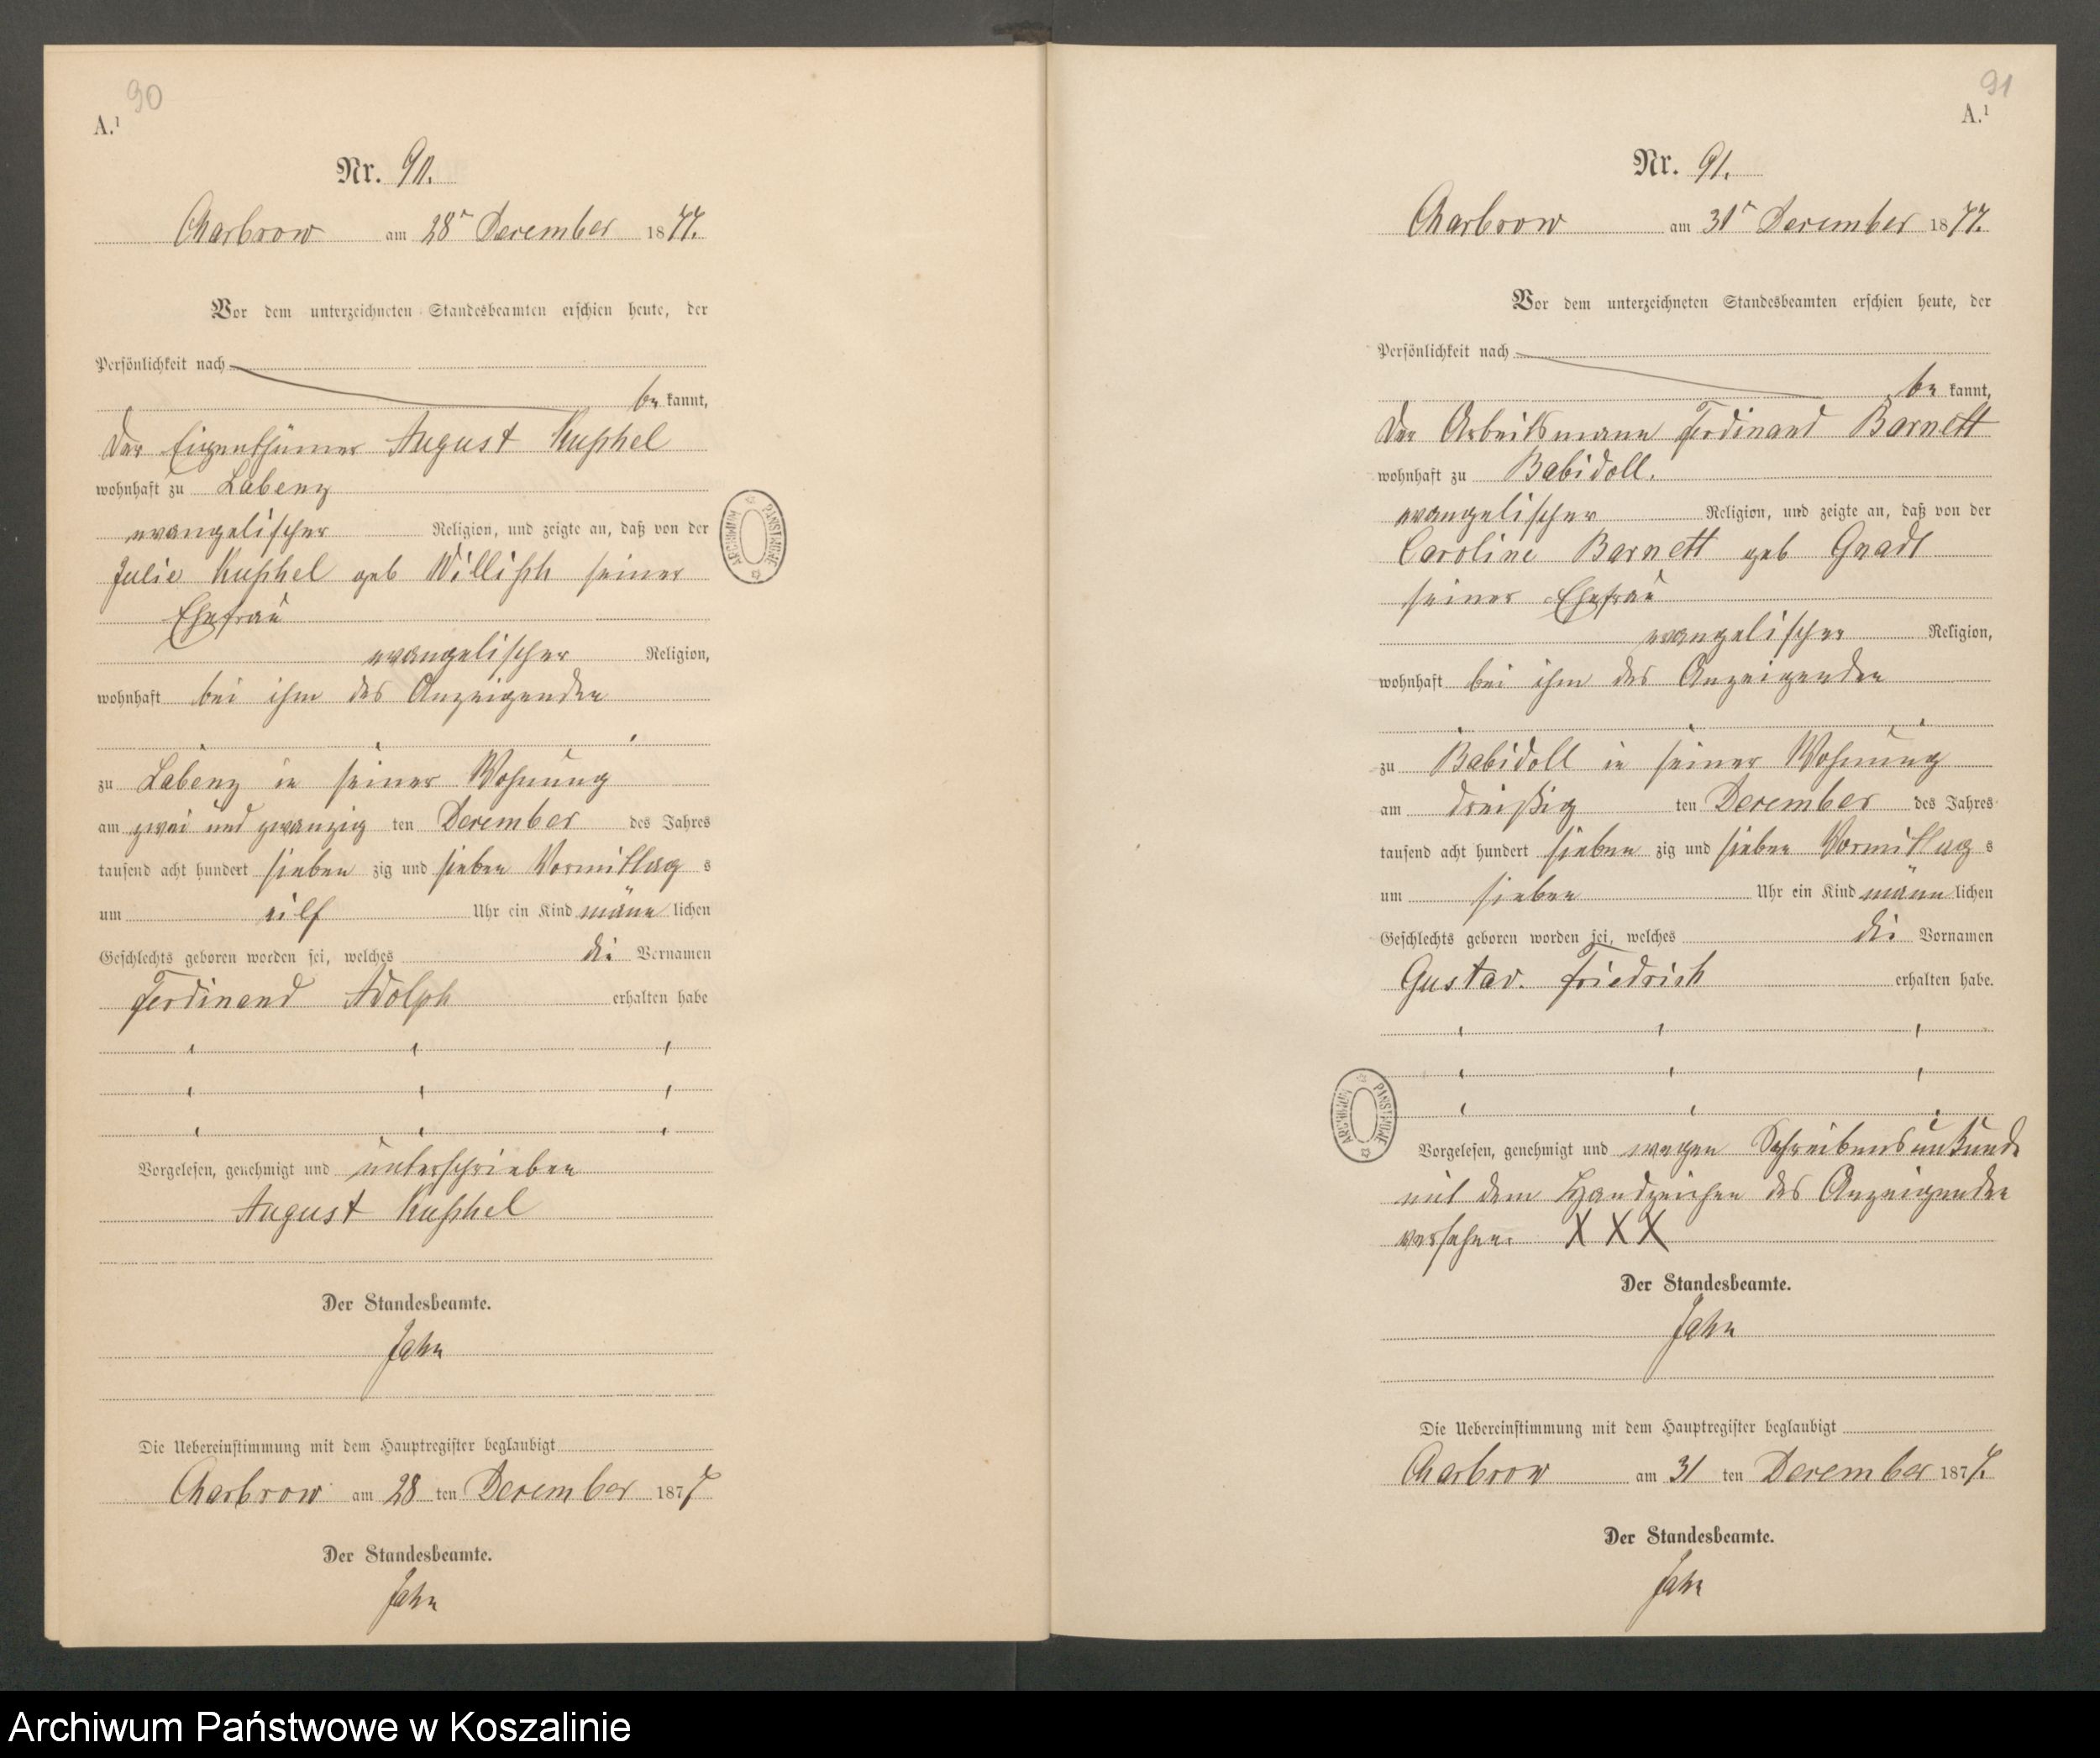 90
A.¹
Nr. 90.
Charbrow am 28ᵗ December 1877.
Vor dem unterzeichneten Standesbeamten erschien heute, der
Persönlichkeit nach
be kannt,
der Eigenthümer August Kuschel
wohnhaft zu Labenz
evangelischer Religion, und zeigte an, daß von der
Julie Kuschel geb Willisch seiner
Ehefrau
evangelischer Religion,
wohnhaft bei ihm des Anzeigenden
zu Labenz in seiner Wohnung
am zwei und zwanzig ten December des Jahres
tausend acht hundert sieben zig und sieben Vormittag s
um eilf Uhr ein Kind männ lichen
Geschlechts geboren worden sei, welches die Vornamen
Ferdinand Adolph erhalten habe
Vorgelesen, genehmigt und unterschrieben
August Kuschel
Der Standesbeamte.
Jahn
Die Uebereinstimmung mit dem Hauptregister beglaubigt
Charbrow am 28 ten December 1877
Der Standesbeamte.
Jahn
ARCHIWUM PAŃSTWOWE
91
A.¹
Nr. 91.
Charbrow am 31ᵗ December 1877.
Vor dem unterzeichneten Standesbeamten erschien heute, der
Persönlichkeit nach
be kannt,
der Arbeitsmann Ferdinand Barnett
wohnhaft zu Babidoll.
evangelischer Religion, und zeigte an, daß von der
Caroline Barnett geb Gnadt
seiner Ehefrau
evangelischer Religion,
wohnhaft bei ihm des Anzeigenden
zu Babidoll in seiner Wohnung
am dreißig ten December des Jahres
tausend acht hundert sieben zig und sieben Vormittag s
um sieben Uhr ein Kind männ lichen
Geschlechts geboren worden sei, welches die Vornamen
Gustav. Friedrich erhalten habe.
Vorgelesen, genehmigt und wegen Schreibensunkunde
mit dem Handzeichen des Anzeigenden
versehen. X X X
Der Standesbeamte.
Jahn
Die Uebereinstimmung mit dem Hauptregister beglaubigt
Charbrow am 31 ten December 1877.
Der Standesbeamte.
Jahn
ARCHIWUM PAŃSTWOWE
Archiwum Państwowe w Koszalinie